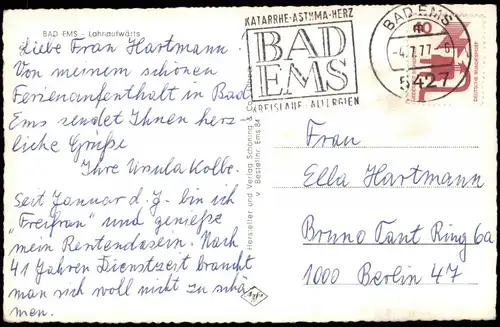 BAD EMS - Lahnaufwärts
Liebe Frau Hartmann.
Von meinem schönen
Ferienaufenthalt in Bad
Ems sendet Ihnen herz-
liche Grüße
Ihre Ursula Kolbe.
Seit Januar d. J. bin ich
"Freifrau" und genieße
mein Rentendasein. Nach
41 Jahren Dienstzeit braucht
man sich woll nicht zu schä-
men.
Hersteller und Verlag Schöning & Co
Bestellnr. Ems 84
KATARRHE-ASTHMA-HERZ
BAD
EMS
KREISLAUF-ALLERGIEN
BAD EMS
-4.7.77
5427
40
DEUTSCHE BUNDESPOST
Frau
Ella Hartmann
Bruno Taut Ring 6a
1000 Berlin 47